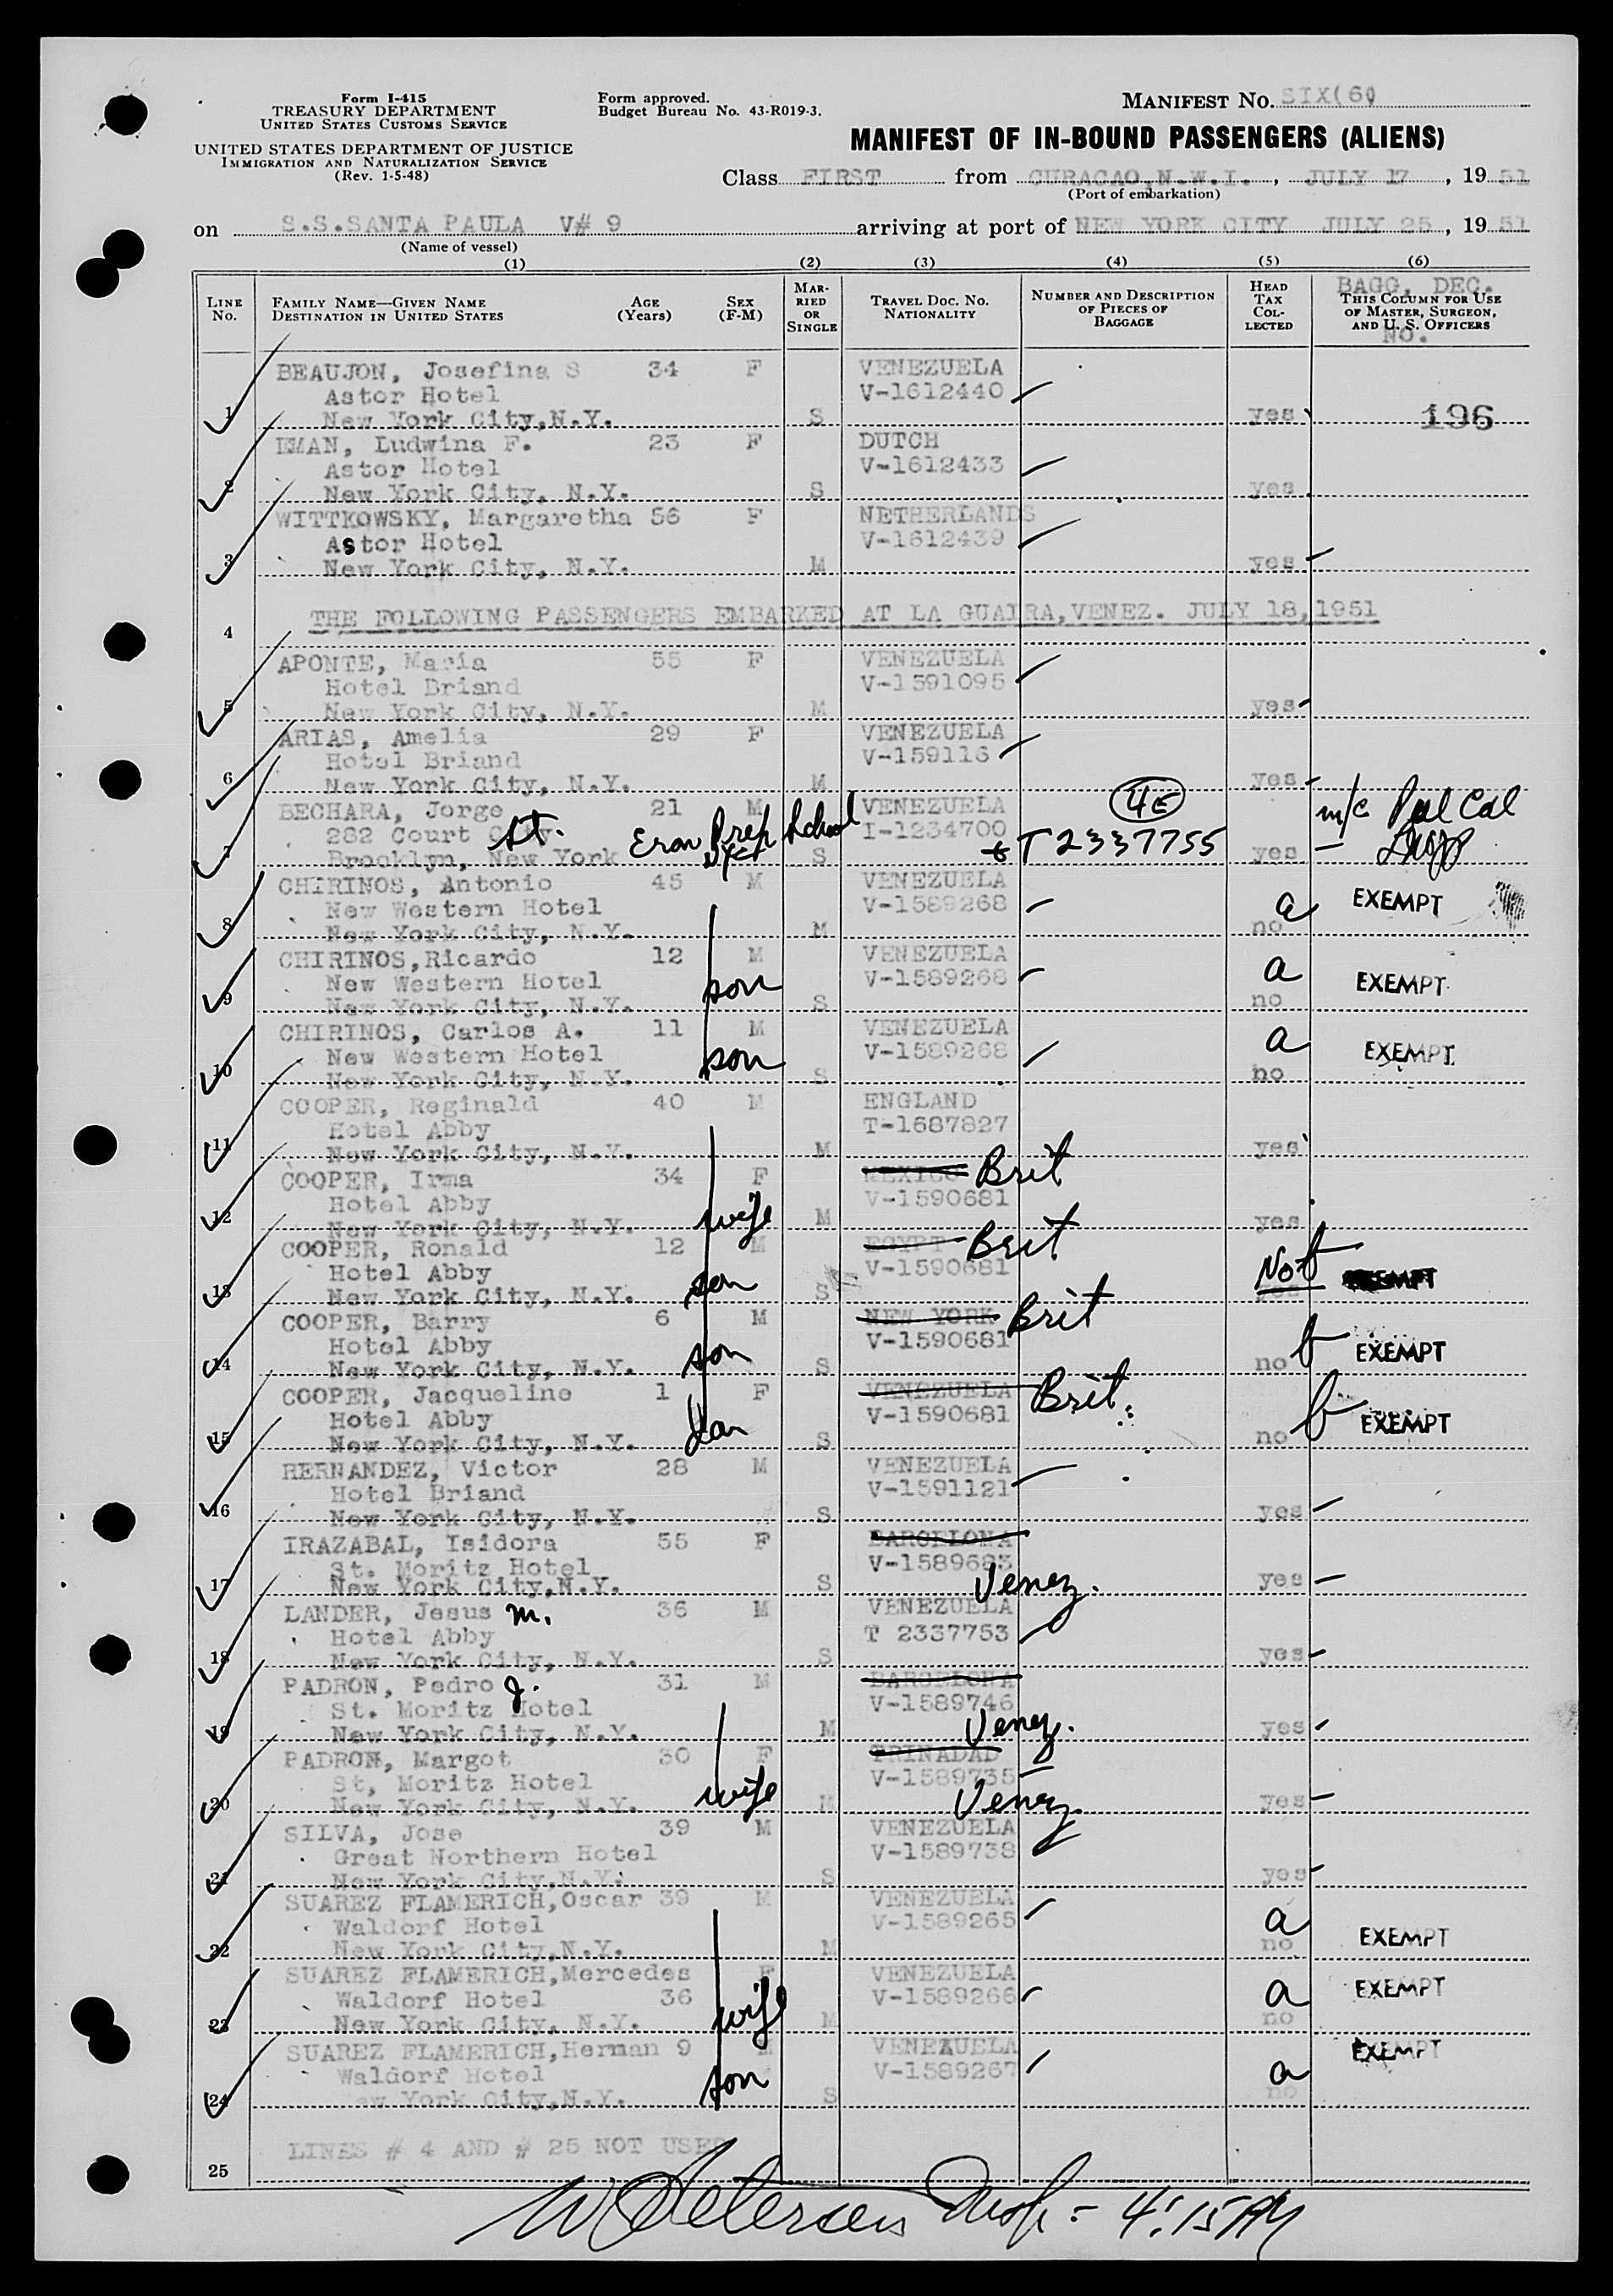 Form I-415
TREASURY DEPARTMENT
UNITED STATES CUSTOMS SERVICE
UNITED STATES DEPARTMENT OF JUSTICE
IMMIGRATION AND NATURALIZATION SERVICE
(Rev. 1-5-48)
Form approved.
Budget Bureau No. 43-R019-3.
MANIFEST NO. SIX(6)
MANIFEST OF IN-BOUND PASSENGERS (ALIENS)
Class FIRST from CURACAO,N.W.I. , JULY 17 , 19 51
(Port of embarkation)
on S.S.SANTA PAULA V# 9 arriving at port of NEW YORK CITY JULY 25 , 19 51
(Name of vessel)
(1) (2) (3) (4) (5) (6)
LINE No. FAMILY NAME—GIVEN NAME DESTINATION IN UNITED STATES AGE (Years) SEX (F-M) MARRIED OR SINGLE TRAVEL DOC. NO. NATIONALITY NUMBER AND DESCRIPTION OF PIECES OF BAGGAGE HEAD TAX COLLECTED BAGG. DEC. THIS COLUMN FOR USE OF MASTER, SURGEON, AND U. S. OFFICERS NO.
BEAUJON, Josefina S 34 F VENEZUELA
Astor Hotel V-1612440
1 New York City,N.Y. S yes 196
EMAN, Ludwina F. 23 F DUTCH
Astor Hotel V-1612433
2 New York City, N.Y. S yes
WITTKOWSKY, Margaretha 56 F NETHERLANDS
Astor Hotel V-1612439
3 New York City, N.Y. M yes
4 THE FOLLOWING PASSENGERS EMBARKED AT LA GUAIRA,VENEZ. JULY 18,1951
APONTE, Maria 55 F VENEZUELA
Hotel Briand V-1591095
5 New York City, N.Y. M yes
ARIAS, Amelia 29 F VENEZUELA
Hotel Briand V-159116
6 New York City, N.Y. M yes
BECHARA, Jorge 21 M VENEZUELA 4E m/c
282 Court City St. Eron Prep School I-1234700
7 Brooklyn, New York S T 2337755 yes
CHIRINOS, Antonio 45 M VENEZUELA
New Western Hotel V-1589268 a EXEMPT
8 New York City, N.Y. M no
CHIRINOS,Ricardo 12 M VENEZUELA
New Western Hotel son V-1589268 a EXEMPT
9 New York City, N.Y. S no
CHIRINOS, Carlos A. 11 M VENEZUELA
New Western Hotel son V-1589268 a EXEMPT
10 New York City, N.Y. S no
COOPER, Reginald 40 M ENGLAND
Hotel Abby T-1687827
11 New York City, N.Y. M yes
COOPER, Irma 34 F MEXICO Brit
Hotel Abby wife V-1590681
12 New York City, N.Y. M yes
COOPER, Ronald 12 M EGYPT Brit
Hotel Abby son V-1590681 Not EXEMPT
13 New York City, N.Y. S yes
COOPER, Barry 6 M NEW YORK Brit
Hotel Abby son V-1590681 b EXEMPT
14 New York City, N.Y. S no
COOPER, Jacqueline 1 F VENEZUELA Brit.
Hotel Abby dau V-1590681 b EXEMPT
15 New York City, N.Y. S no
HERNANDEZ, Victor 28 M VENEZUELA
Hotel Briand V-1591121
16 New York City, N.Y. S yes
IRAZABAL, Isidora 55 F BARCELONA
St. Moritz Hotel V-1589683
17 New York City,N.Y. S Venez. yes
LANDER, Jesus M. 36 M VENEZUELA
Hotel Abby T 2337753
18 New York City, N.Y. S yes
PADRON, Pedro J. 31 M BARCELONA
St. Moritz Hotel V-1589746
19 New York City, N.Y. M Venez. yes
PADRON, Margot 30 F TRINADAD
St, Moritz Hotel wife V-1589735
20 New York City, N.Y. M Venez. yes
SILVA, Jose 39 M VENEZUELA
Great Northern Hotel V-1589738
21 New York City,N.Y. S yes
SUAREZ FLAMERICH,Oscar 39 M VENEZUELA
Waldorf Hotel V-1589265 a EXEMPT
22 New York City,N.Y. M no
SUAREZ FLAMERICH,Mercedes F VENEZUELA
Waldorf Hotel 36 wife V-1589266 a EXEMPT
23 New York City, N.Y. M no
SUAREZ FLAMERICH,Herman 9 M VENEZUELA EXEMPT
Waldorf Hotel son V-1589267 a
24 ew York City,N.Y. S no
LINES # 4 AND # 25 NOT USED
25
W Petersen Insp - 4:15 PM